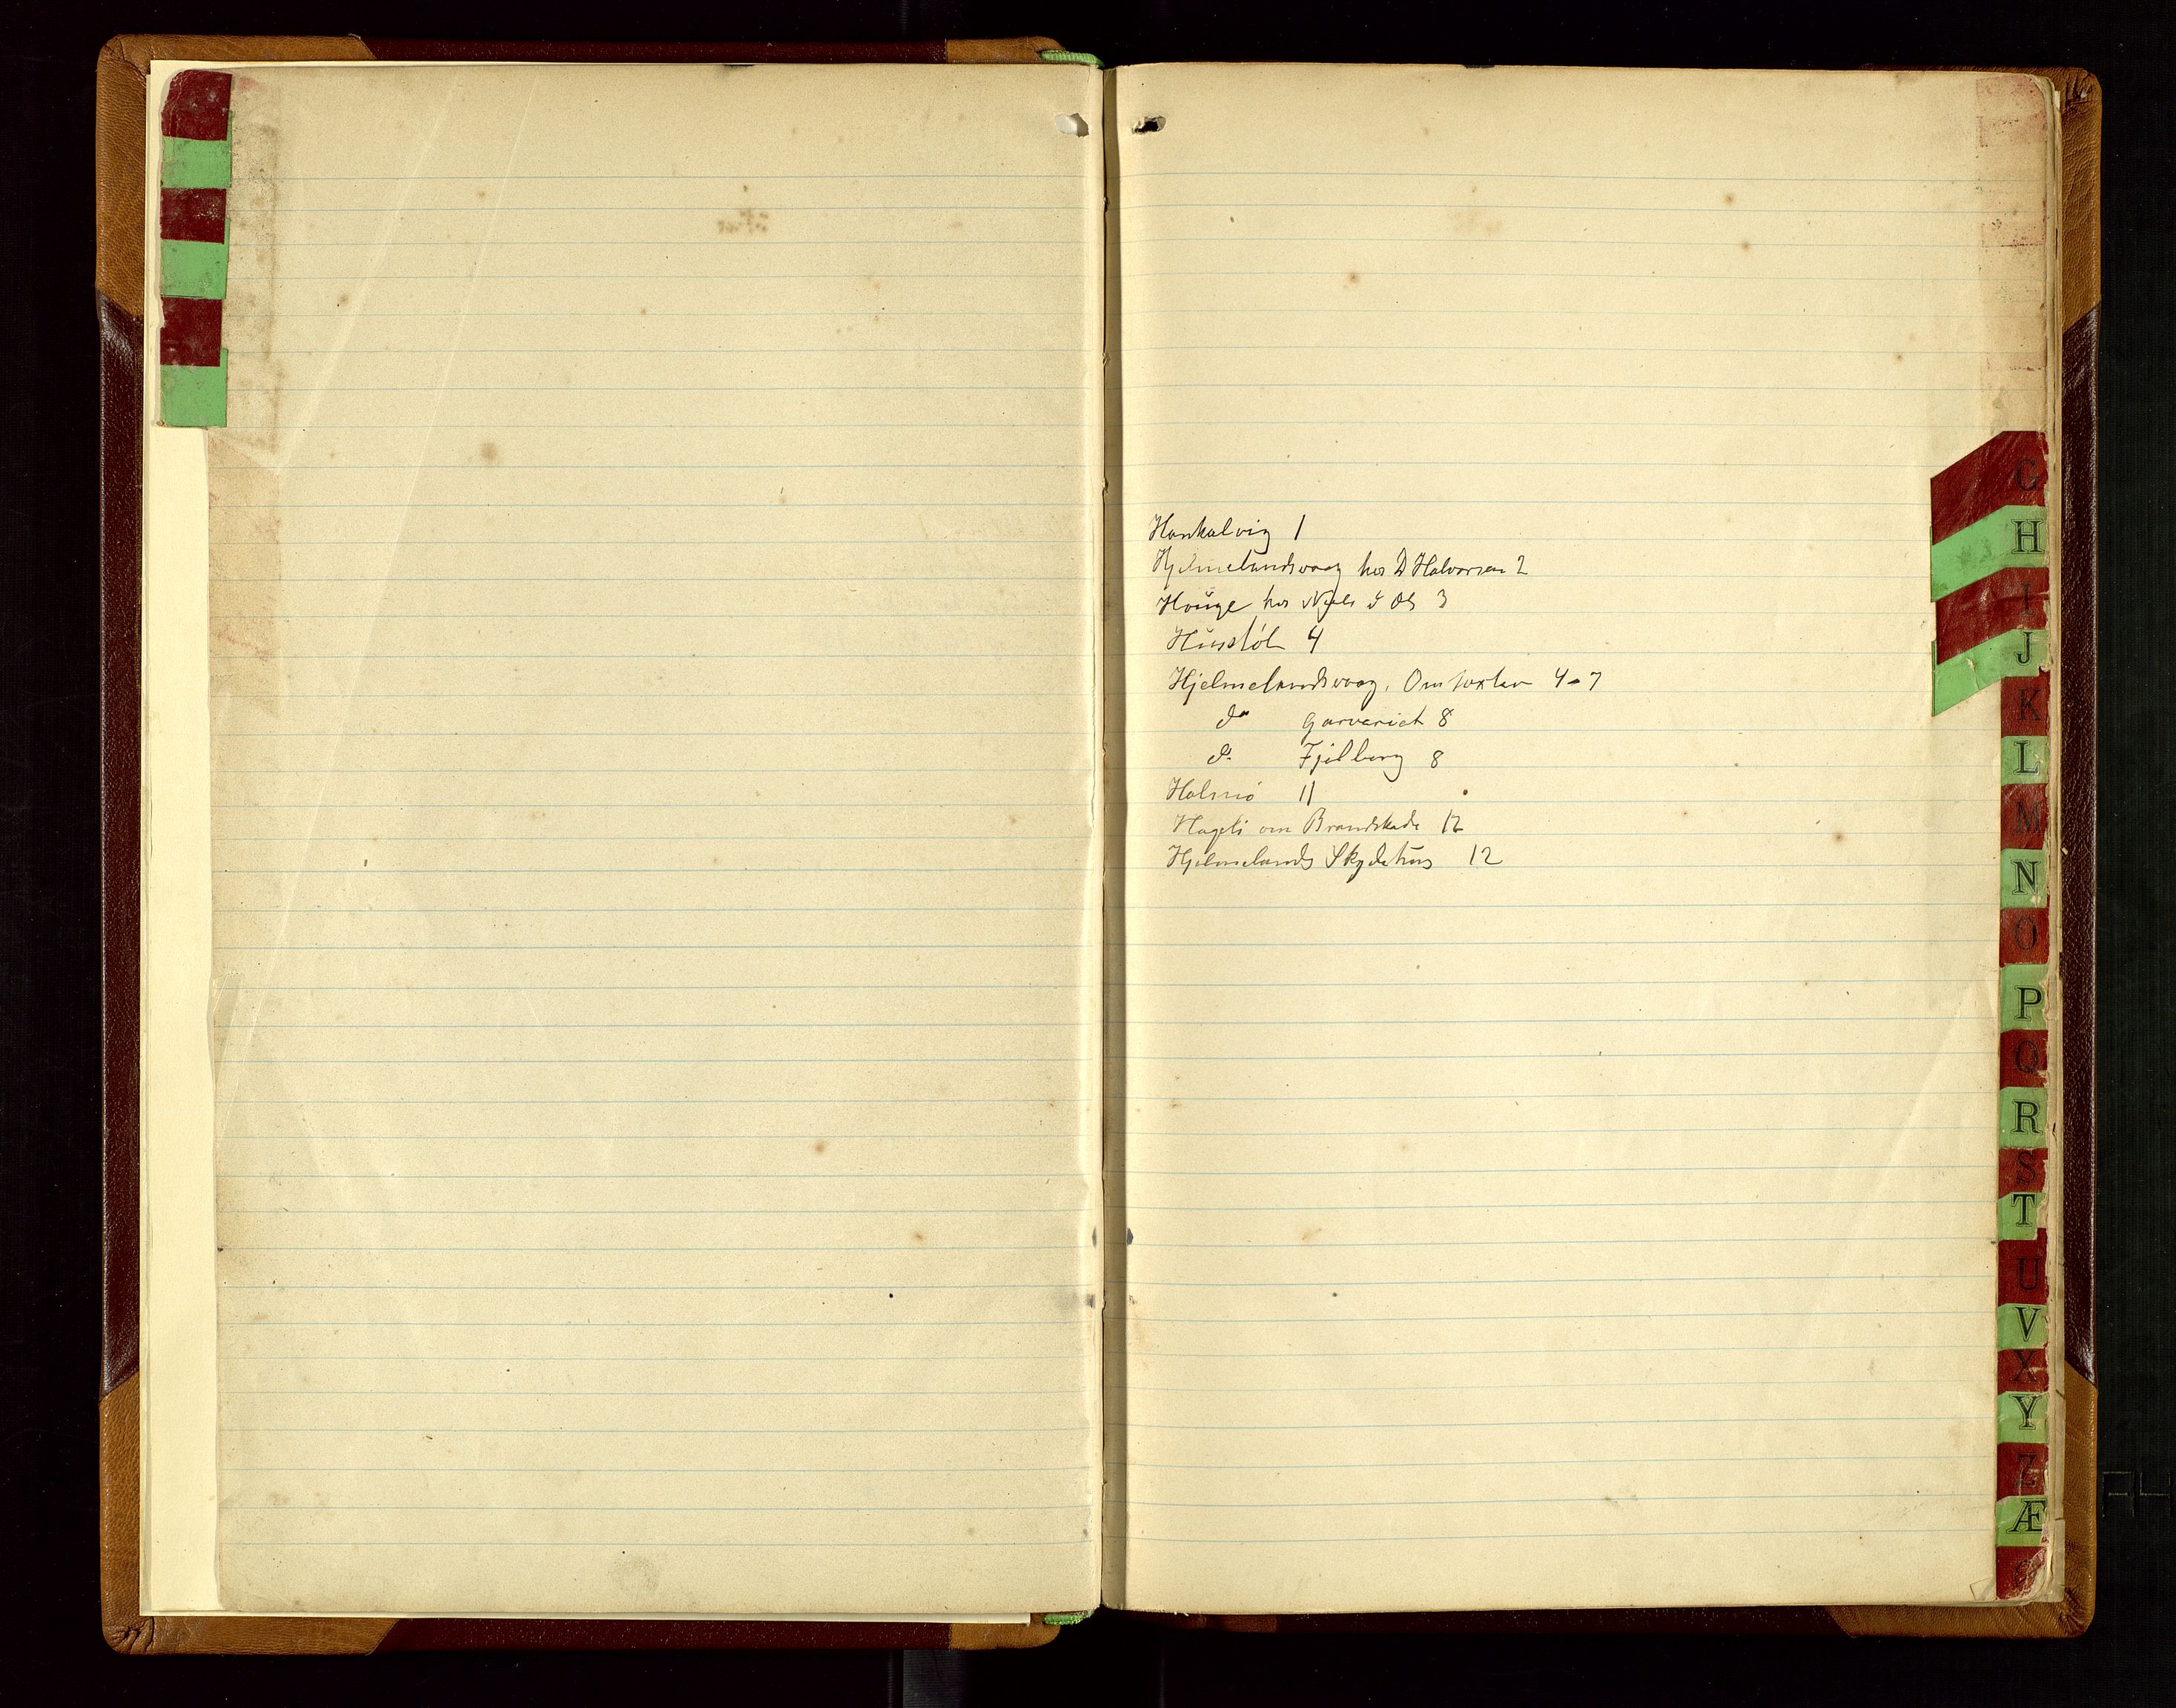 Hankalvig 1
Hjelmelandsvaag hos D Halvorsen 2
Houge hos Niels d Ols 3
Husstøl 4
Hjelmelandsvaag, Omtaxter 4-7
do garveriet 8
do Fjelberg 8
Halsnø 11
Hageli om Brandskade 12
Hjelmelands Skydehus 12
G
H
I
J
K
L
M
N
O
P
Q
R
S
T
U
V
X
Y
Z
Æ
Ø